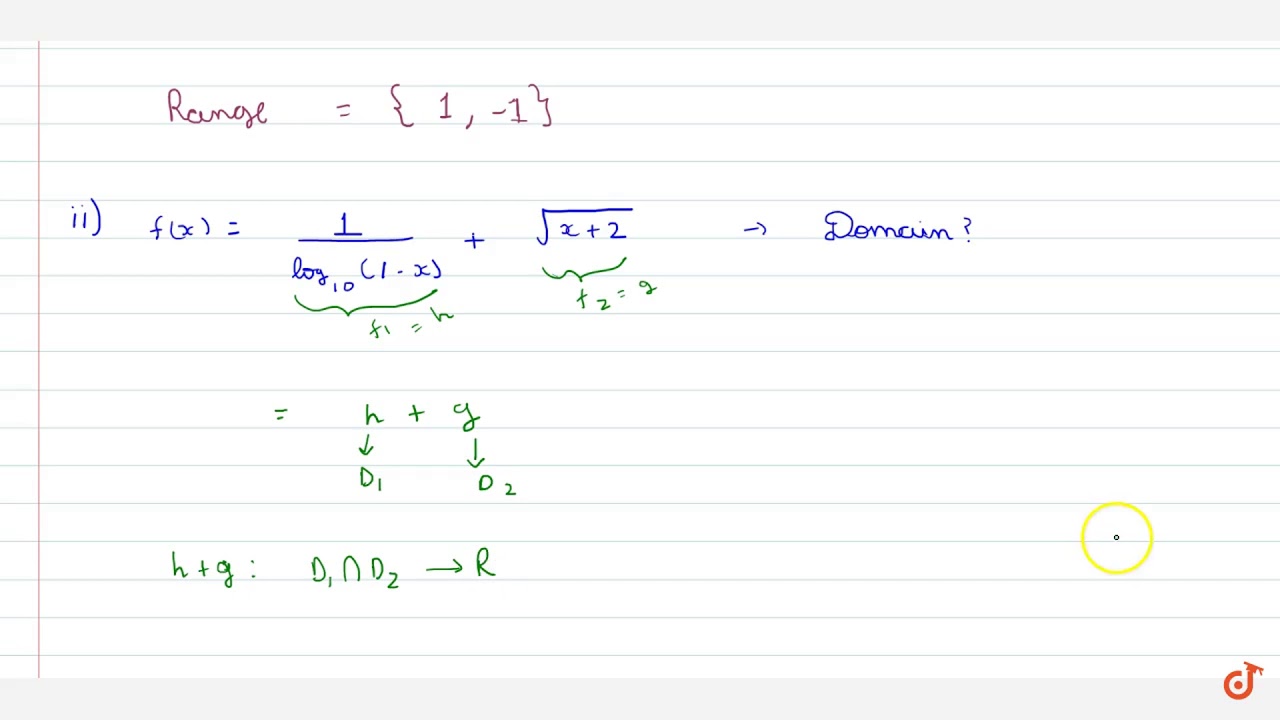 Range = { 1 , -1}
ii) f(x) = 1/log₁₀(1-x) + √(x+2) → Domain?
f₁ = h
f₂ = g
= h + g
↓ ↓
D₁ D₂
h+g : D₁∩D₂ → R